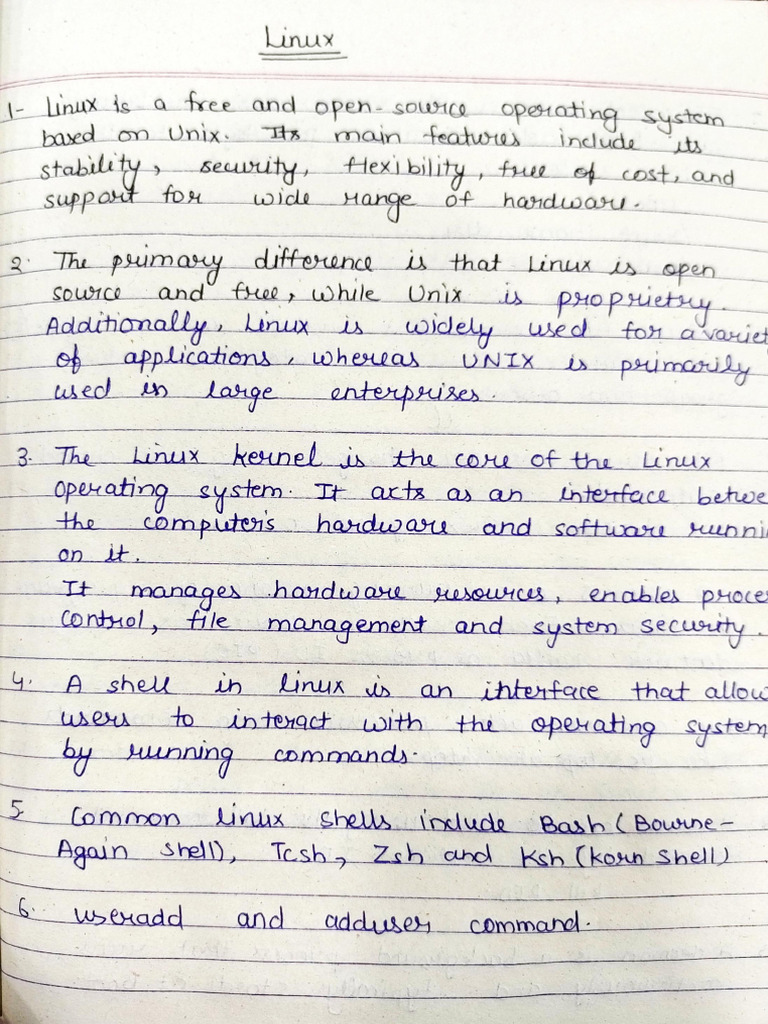 Linux
1- Linux is a free and open-source operating system
based on Unix. Its main features include its
stability, security, flexibility, free of cost, and
support for wide range of hardware.
2. The primary difference is that Linux is open
source and free, while Unix is proprietry.
Additionally, Linux is widely used for a variet
of applications, whereas UNIX is primarily
used in large enterprises.
3. The Linux kernel is the core of the Linux
operating system. It acts as an interface betwe
the computer's hardware and software runni
on it.
It manages hardware resources, enables proce
control, file management and system security.
4. A shell in linux is an interface that allow
users to interact with the operating system
by running commands.
5. Common linux shells include Bash (Bourne-
Again Shell), Tcsh, Zsh and Ksh (Korn Shell)
6. useradd and adduser command.